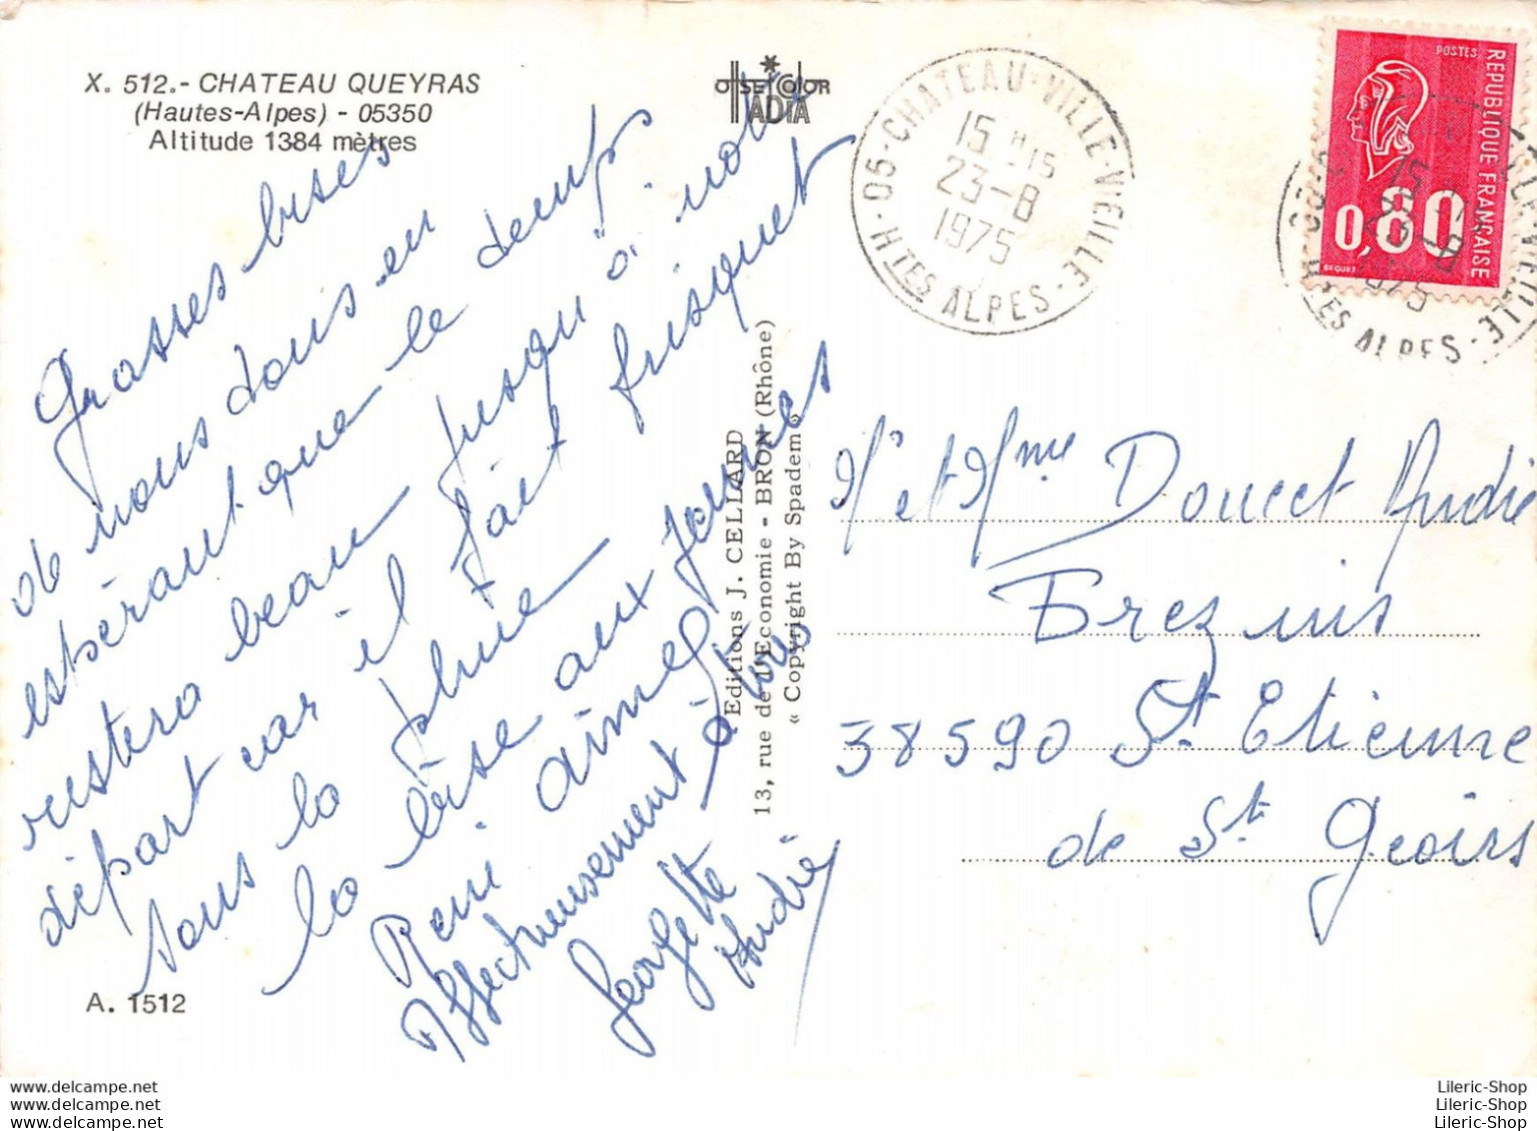 X. 512.- CHATEAU QUEYRAS
(Hautes-Alpes) - 05350
Altitude 1384 mètres
OFFSET COLOR
IADIA
05-CHATEAU-VILLE-VIEILLE
15 H 15
23-8
1975
HTES ALPES
POSTES
REPUBLIQUE FRANÇAISE
0,80
BEQUET
15 H
23-8
1975
HTES ALPES
Grosses bises
de nous tous en
espérant que le temps
restera beau jusqu'à notre
départ car il fait frisquet
sous la pluie
la bise aux jeunes
Remi aimel
Affectueusement à tous
Georgette
André
Editions J. CELLARD
13, rue de l'Economie - BRON (Rhône)
« Copyright By Spadem »
Mr et Mme Doucet André
Brezins
38590 St Etienne
de St Geoirs
A. 1512
Lileric-Shop.com
Lileric-Shop.com
Lileric-Shop.com
Lileric-Shop
Lileric-Shop
Lileric-Shop